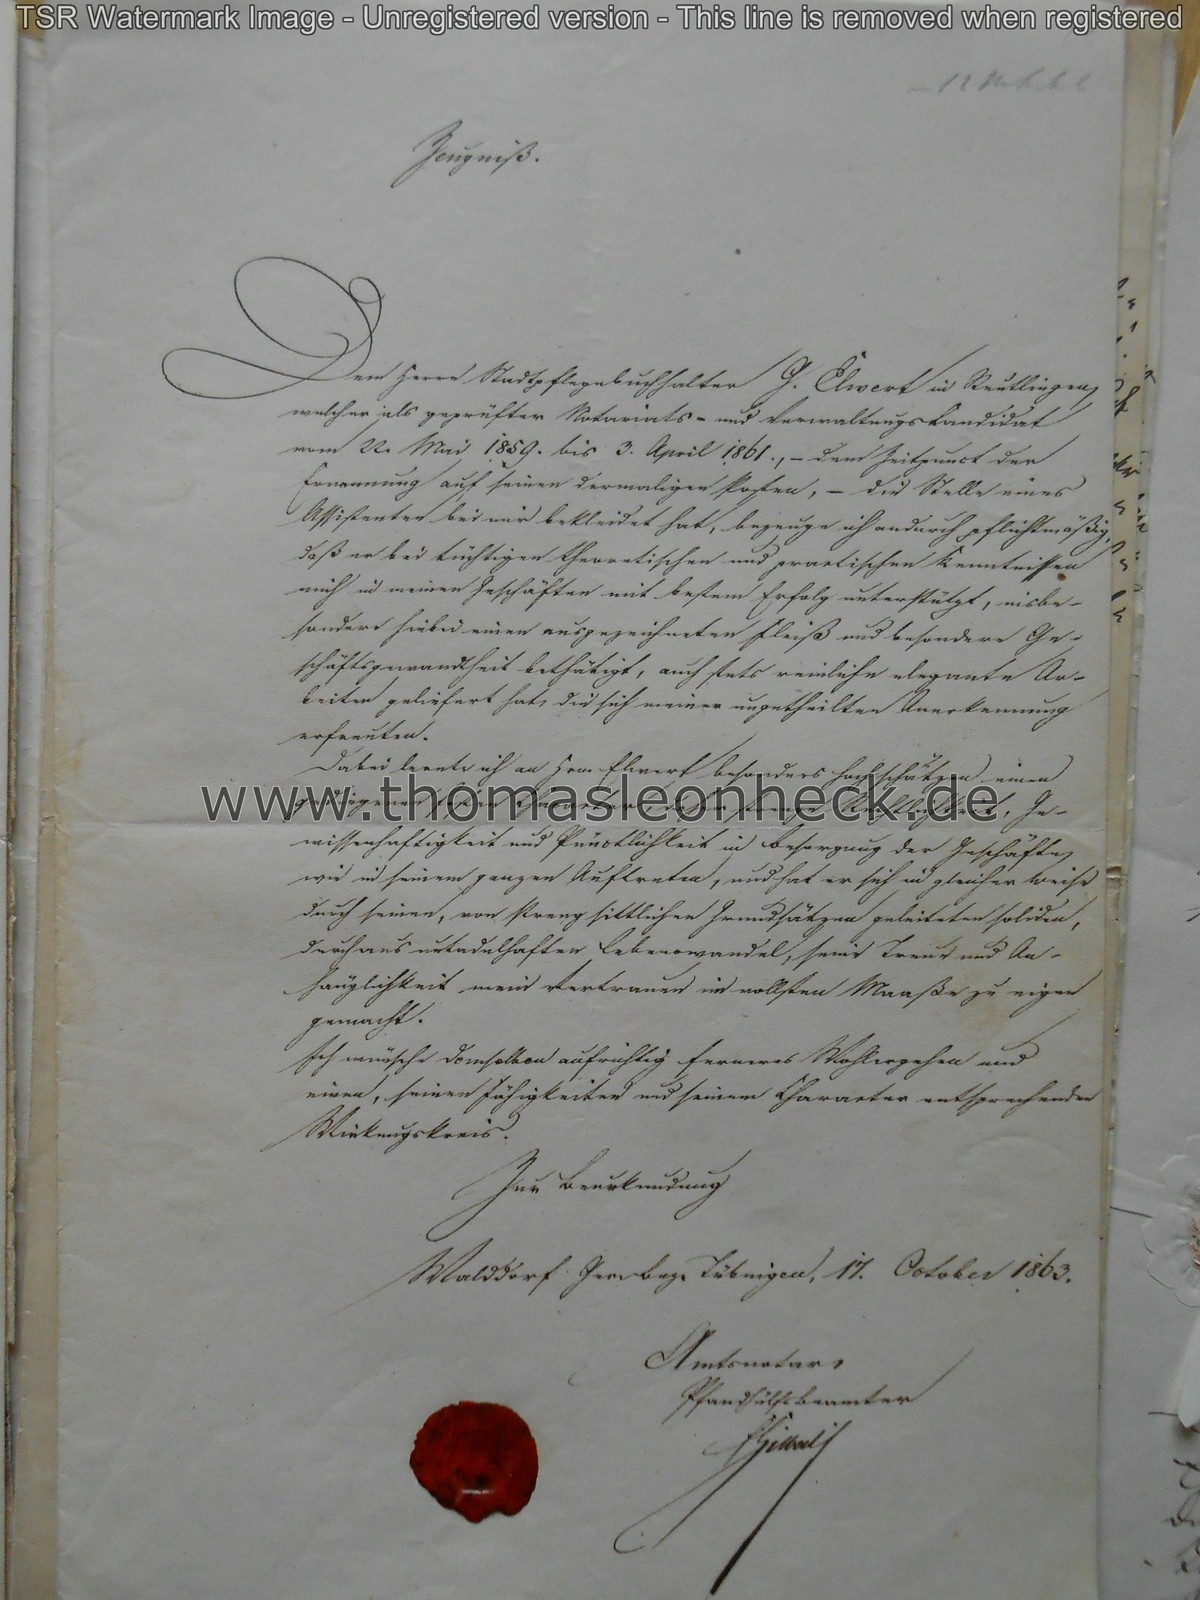 TSR Watermark Image - Unregistered version - This line is removed when registered
Zeugniß.
Dem Herrn Stadtpflegebuchhalter G. Elwert in Reutlingen,
welcher als geprüfter Notariats- und Verwaltungskandidat
vom 22. Mai 1859. bis 3. April 1861., - dem Zeitpunct der
Ernennung auf seinen dermaligen Posten, - die Stelle eines
Assistenten bei mir bekleidet hat, bezeuge ich andurch pflichtmäßig,
daß er bei tüchtigen theoretischen und practischen Kenntnissen
mich in meinen Geschäften mit bestem Erfolg unterstützt, insbe-
sondere hiebei einen ausgezeichneten Fleiß und besondere Ge-
schäftsgewandtheit bethätigt, auch stets reinliche elegante Ar-
beiten geliefert hat, die sich meiner ungetheilten Anerkennung
erfreuten.
Dabei lernte ich an Hrn. Elwert besonders hochschätzen einen
gediegenen Character, strenge Rechtlichkeit, Ge-
www.thomasleonheck.de
wissenhaftigkeit und Pünctlichkeit in Besorgung der Geschäfte,
wie in seinem ganzen Auftreten, und hat er sich in gleicher Weise
durch seinen, von streng sittlichen Grundsätzen geleiteten soliden,
durchaus untadelhaften Lebenswandel, seine Treue und An-
hänglichkeit mein Vertrauen im vollsten Maaße zu eigen
gemacht.
Ich wünsche demselben aufrichtig ferneres Wohlergehen und
einen, seinen Fähigkeiten und seinem Character entsprechenden
Wirkungskreis.
Zur Beurkundung
Walddorf Tübingen, 17. October 1863.
Amtsnotar,
Pfandhülfsbeamter